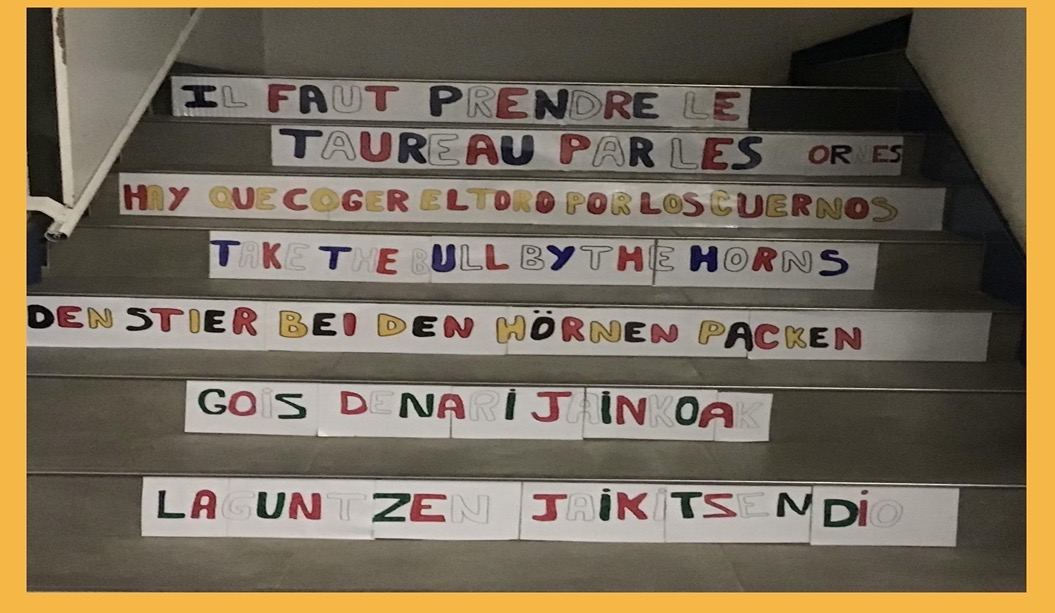 IL FAUT PRENDRE LE
TAUREAU PAR LES ORNES
HAY QUE COGER EL TORO POR LOS CUERNOS
TAKE THE BULL BY THE HORNS
DEN STIER BEI DEN HÖRNEN PACKEN
GOIS DENARI JAINKOAK
LAGUNTZEN JAIKITSEN DIO